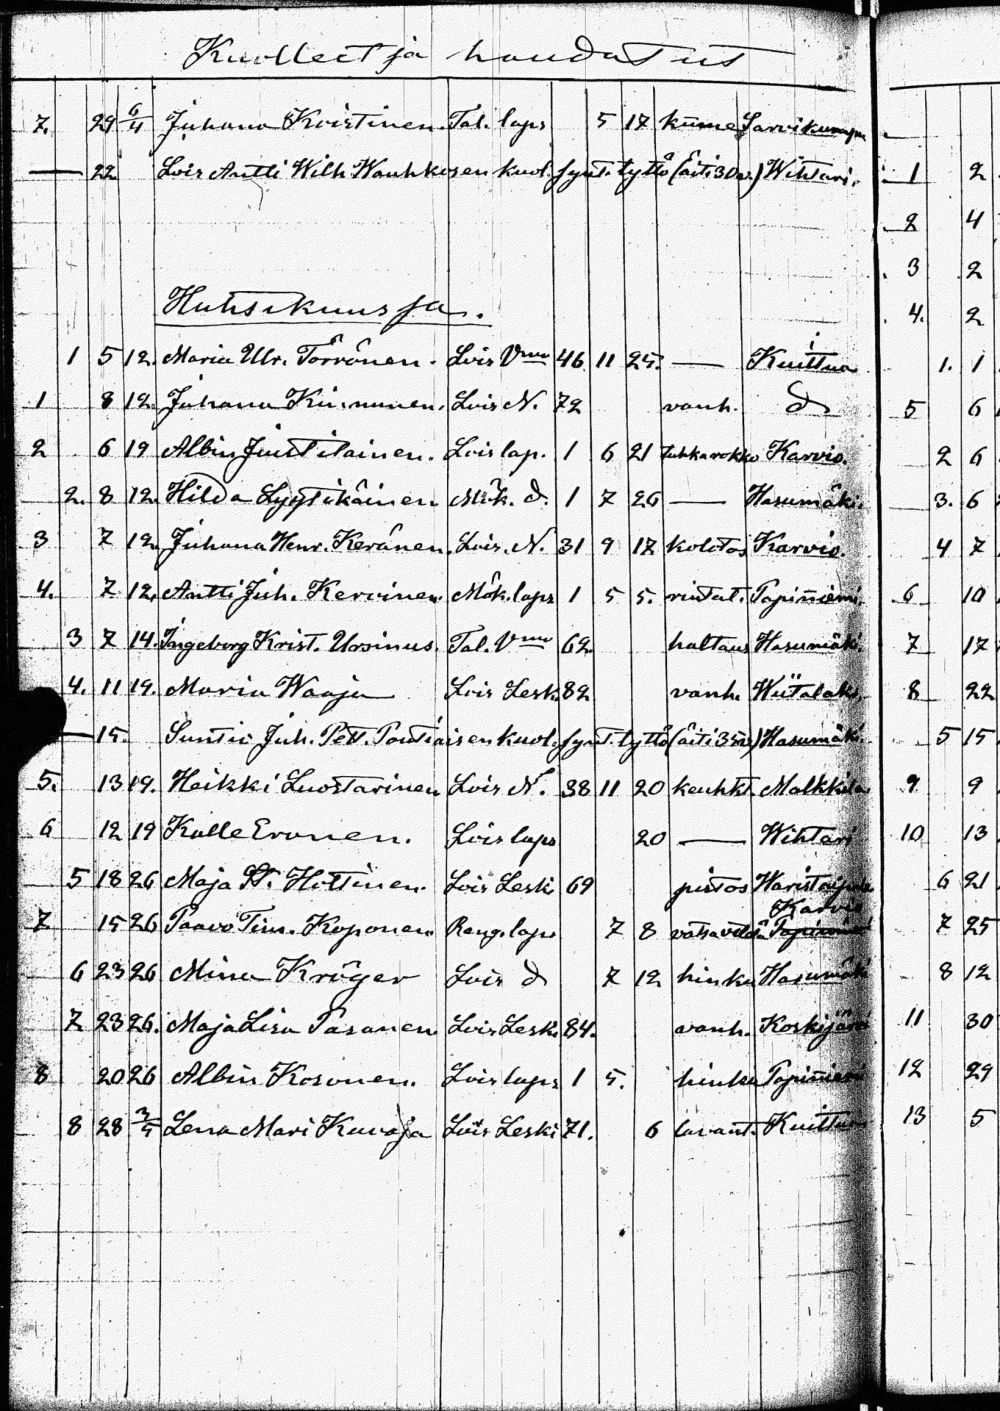 Kuolleet ja haudatut
7. 29 6/4 Juhana Kvistinen. Tal. laps 5 17 kuume Sarvikumpu
— 22 Lois Antti Wilh. Wauhkosen kuol. synt. tyttö (äiti 30 v.) Wihtari.
Huhtikuussa.
1 5 12. Maria Ulr. Törrönen. Lois Vmo 46 11 25. — Kuittua
1 8 12. Juhana Kinnunen. Lois N. 72 vanh. d
2 6 19 Albin Juutilainen. Lois lap. 1 6 21 tuhkarokko Karvio.
2. 8 12. Hilda Lyytikäinen Mök. d. 1 7 26 — Hasumäki.
3 7 12. Juhana Henr. Keränen. Lois. N. 31 9 17 kolotos Karvio.
4. 7 12. Antti Juh. Kervinen. Mök. laps 1 5 5. rintat. Papinniemi.
3 7 14. Ingeborg Krist. Ursinus. Tal. Vmo 62. haltaus Hasumäki.
4. 11 19. Maria Waaja Lois Lesk. 82 vanh. Wiitalak.
— 15. Suntio Juh. Pett. Pontiaisen kuol. synt. tyttö (äiti 35 v.) Hasumäki.
5. 13 19. Heikki Luostarinen Lois N. 38 11 20 keuhkt. Malkkila
6 12 19 Kalle Eronen. Lois laps 20 — Wihtari
5 18 26 Maja St. Hottinen. Lois Leski 69 pistos
Karvio
7 15 26 Paavo Tim. Koponen. Reng. laps 7 8 Papinniemi
6 23 26 Mina Kröger Lois d 7 12 hinku Hasumäki
7 23 26. Maja Lisa Pasanen Lois Lesk. 84. vanh. Koskijärvi
8 20 26 Albin Kosonen. Lois laps 1 5. hinku Papinniemi
8 28 3/5 Lena Mari Kuvaja Lois Leski 71. 6 lavant. Kuittua
1 2
2 4
3 2
4. 2
1. 1
5 6
2 6
3. 6
4 7
6 10
7 17
8 22
5 15
9 9
10 13
6 21
7 25
8 12
11 30
12 29
13 5